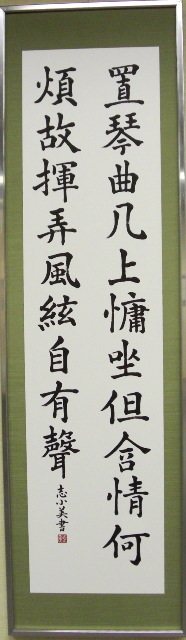 置琴曲几上慵坐但含情何
煩故揮弄風絃自有聲
志小英書